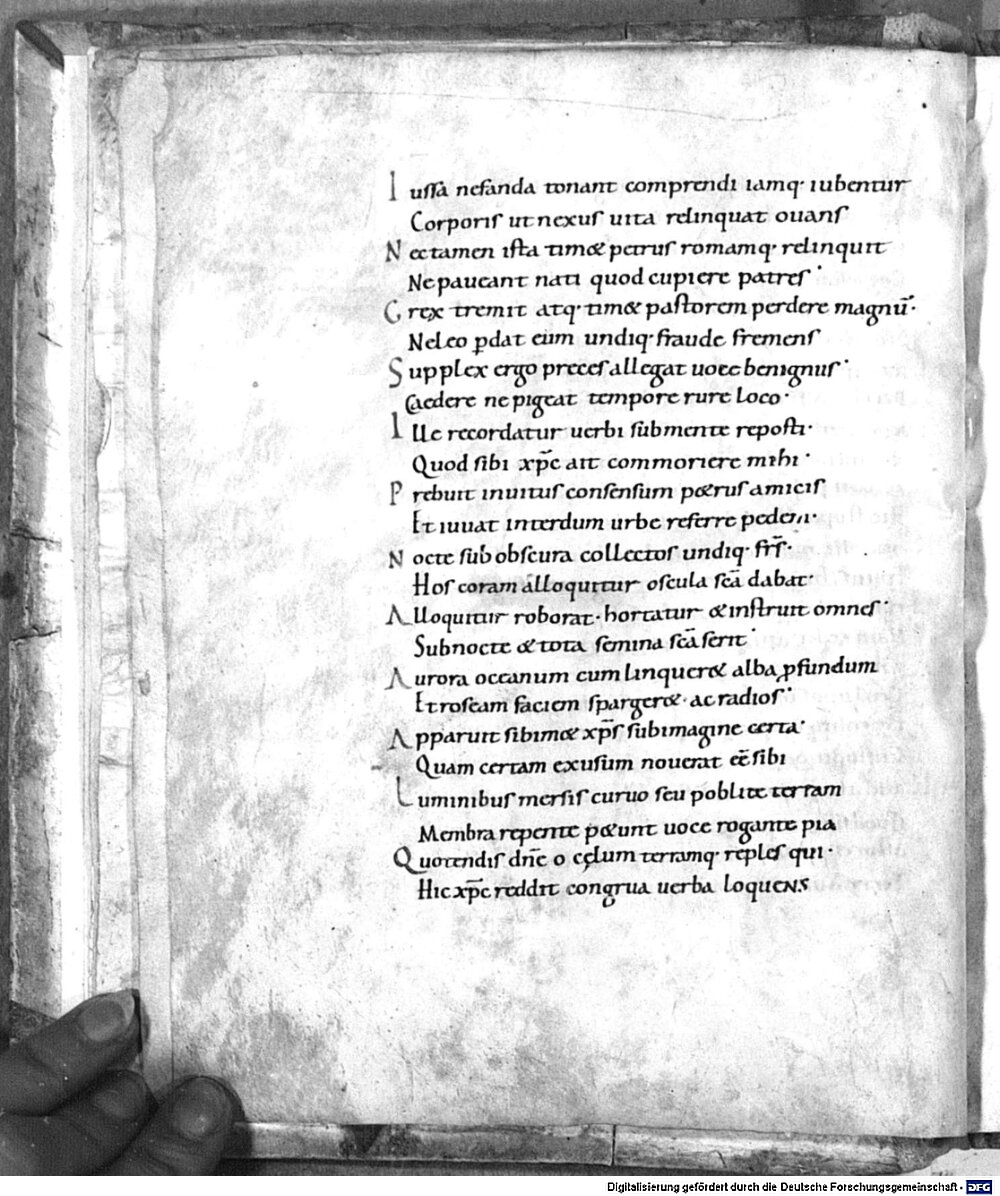 Iussa nefanda tonant comprendi iamq· iubentur
Corporis ut nexus uita relinquat ouans
Nec tamen ista tim& petrus romamq· relinquit
Ne paueant nati quod cupiere patres·
Grex tremit atq· tim& pastorem perdere magnū·
Ne leo p̱dat eum undiq· fraude fremens
Supplex ergo preces allegat uoce benignus·
Caedere ne pigeat tempore rure loco·
Ille recordatur uerbi sub mente reposti·
Quod sibi xp̄e ait commoriere mihi·
Prebuit inuitus consensum p&rus amicis
Et iuuat interdum urbe referre pedem·
Nocte sub obscura collectos undiq· fr̄s·
Hos coram alloquitur oscula sc̄a dabat·
Alloquitur roborat· hortatur & instruit omnes·
Sub nocte & tota semina sc̄a serit·
Aurora occanum cum linquer& alba p̱fundum
Et roseam faciem sparger& · ac radios·
Apparuit sibim& xp̄s sub imagine certa·
Quam certam ex usum nouerat eē sibi
Luminibus mersis curuo seu poblite terram
Membra repente p&unt uoce rogante pia
Quo tendis dn̄e o cęlum terramq· reples qui·
Hic xp̄c reddit congrua uerba loquens
Digitalisierung gefördert durch die Deutsche Forschungsgemeinschaft - DFG